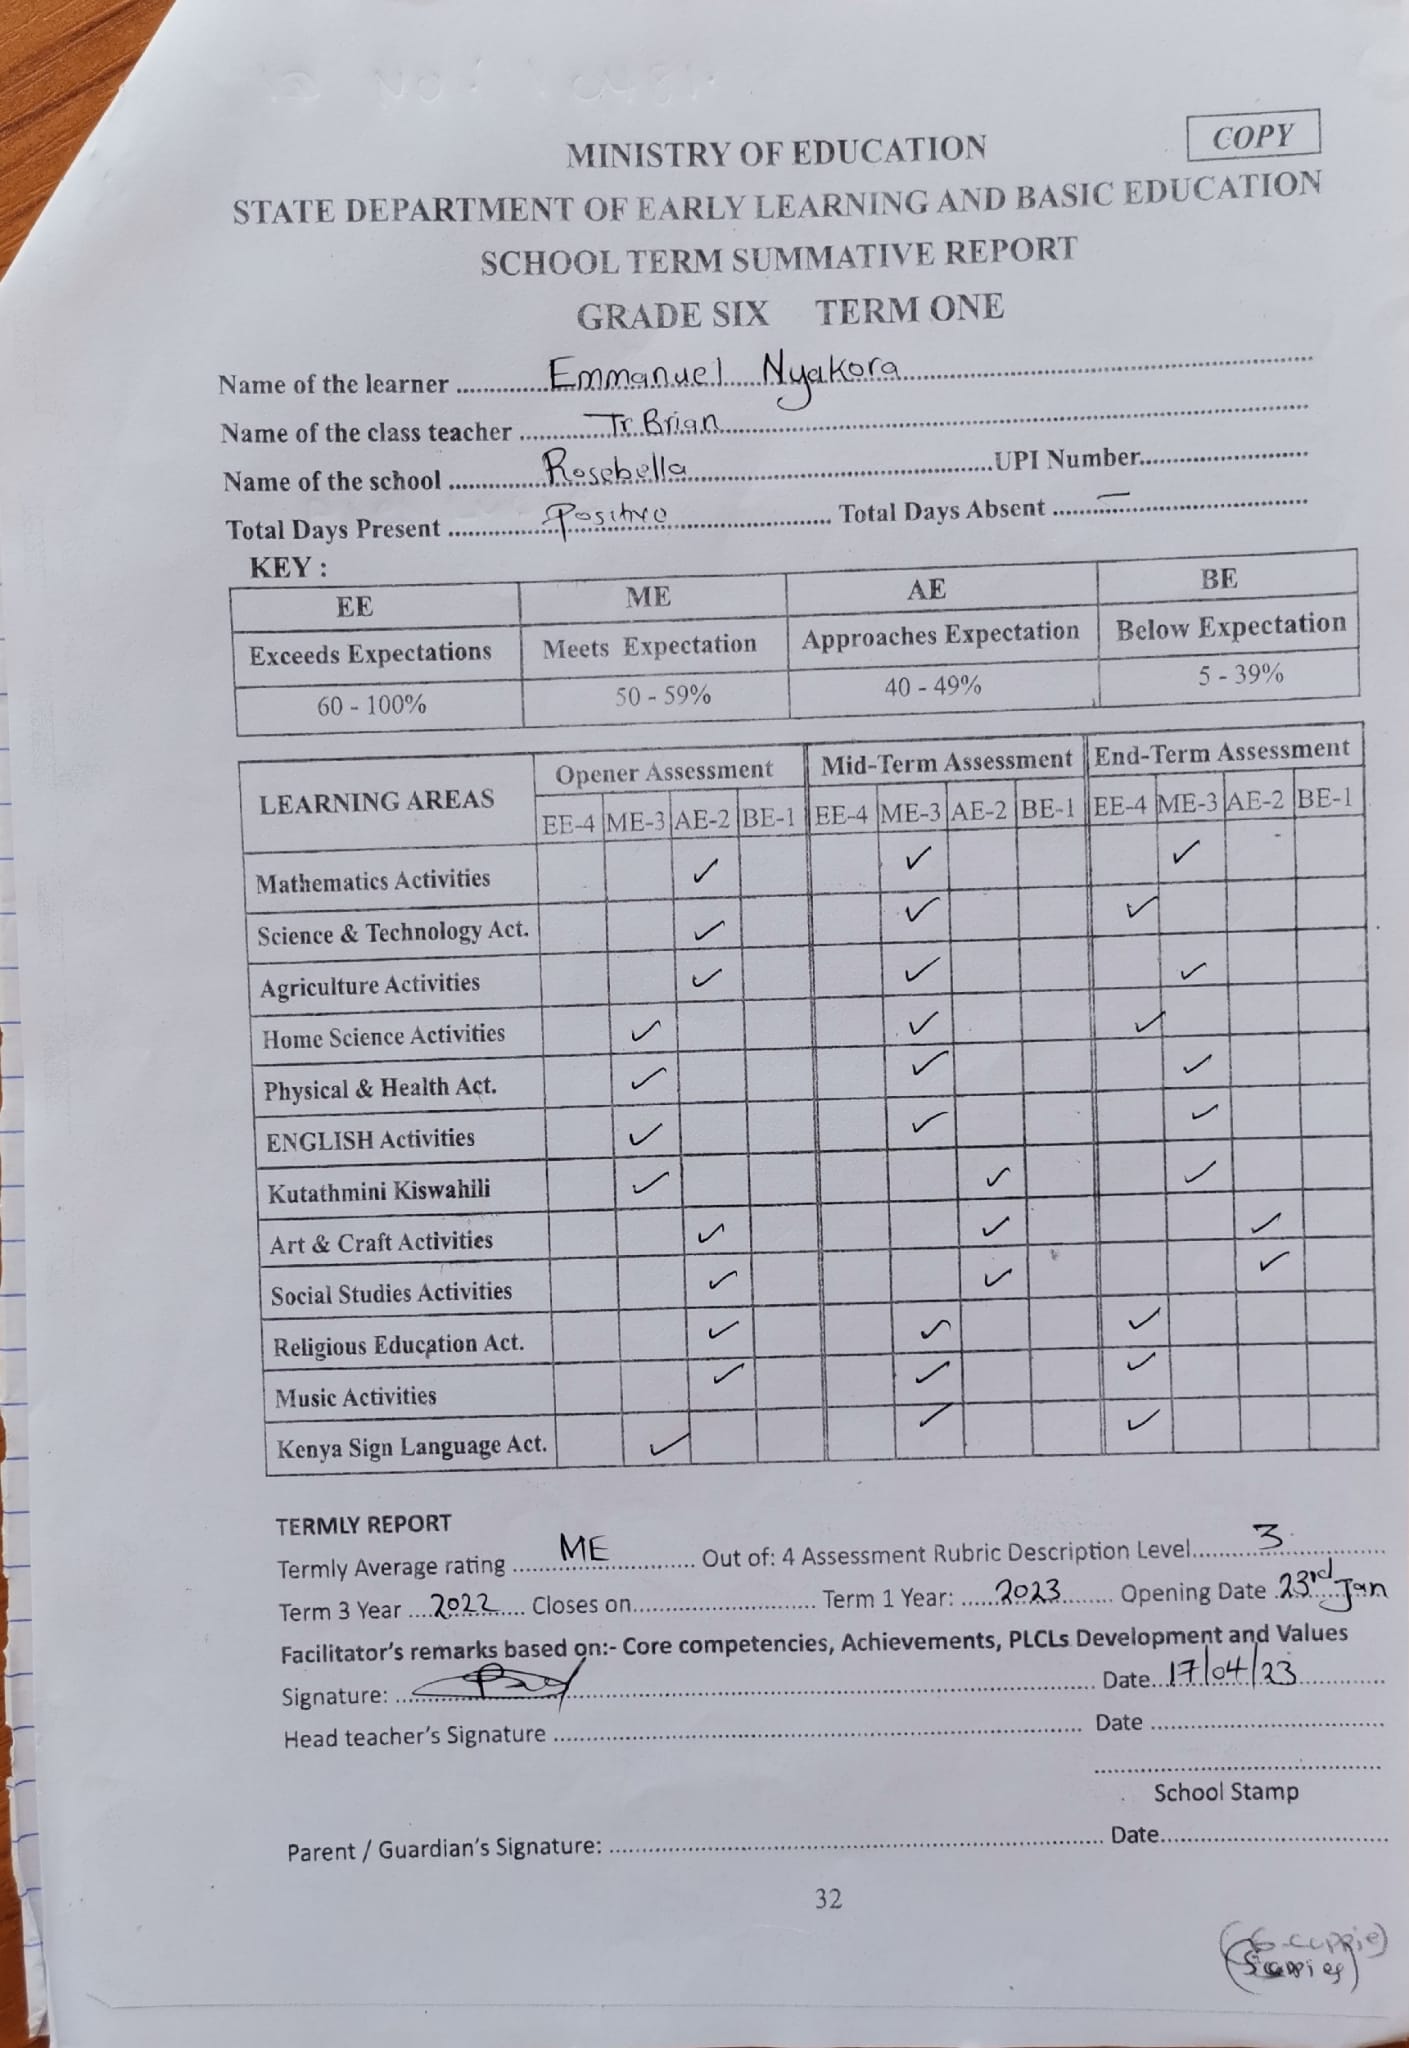 COPY
MINISTRY OF EDUCATION
STATE DEPARTMENT OF EARLY LEARNING AND BASIC EDUCATION
SCHOOL TERM SUMMATIVE REPORT
GRADE SIX TERM ONE
Name of the learner ............ Emmanuel Nyakora ............
Name of the class teacher ............ Tr. Brian ............
Name of the school ............ Rosebella ............ UPI Number............
Total Days Present ............ Positive ............ Total Days Absent ............ – ............
KEY :
EE ME AE BE
Exceeds Expectations Meets Expectation Approaches Expectation Below Expectation
60 - 100% 50 - 59% 40 - 49% 5 - 39%
LEARNING AREAS Opener Assessment Mid-Term Assessment End-Term Assessment
EE-4 ME-3 AE-2 BE-1 EE-4 ME-3 AE-2 BE-1 EE-4 ME-3 AE-2 BE-1
Mathematics Activities ✓ ✓ ✓
Science & Technology Act. ✓ ✓ ✓
Agriculture Activities ✓ ✓ ✓
Home Science Activities ✓ ✓ ✓
Physical & Health Act. ✓ ✓ ✓
ENGLISH Activities ✓ ✓ ✓
Kutathmini Kiswahili ✓ ✓ ✓
Art & Craft Activities ✓ ✓ ✓
Social Studies Activities ✓ ✓ ✓
Religious Education Act. ✓ ✓ ✓
Music Activities ✓ ✓ ✓
Kenya Sign Language Act. ✓ ✓ ✓
TERMLY REPORT
Termly Average rating ........ ME ........ Out of: 4 Assessment Rubric Description Level........ 3 ........
Term 3 Year .... 2022 .... Closes on............ Term 1 Year: ...... 2023 ...... Opening Date 23rd Jan
Facilitator's remarks based on:- Core competencies, Achievements, PLCLs Development and Values
Signature: ............ Date.. 17/04/23 ............
Head teacher's Signature ............ Date ............
School Stamp
Parent / Guardian's Signature: ............ Date............
32